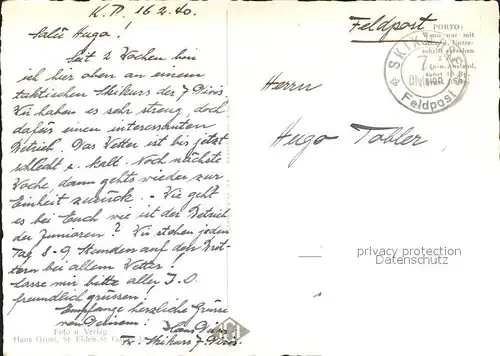 K.P. 16.2.40.
Salü Hugo!
Seit 2 Wochen bin
ich hier oben an einem
taktischen Skikurs der 7. Divis.
Wir haben es sehr streng, doch
dafür einen interessanten
Betrieb. Das Wetter ist bis jetzt
schlecht u. kalt. Noch nächste
Woche, dann gehts wieder zur
Einheit zurück. - Wie geht
es bei Euch wie ist der Betrieb
der Junioren? Wir stehen jeden
Tag 8-9 Stunden auf den Bret-
tern bei allem Wetter!
Lasse mir bitte alle
freundlich grüssen!
Empfange herzliche Grüsse
von Deinem: Hans
Skikurs 7. Divis.
Foto u. Verlag
Hans Gross, St.
Feldpost
PORTO:
SKIKURS
7.
Division
Feldpost
Herrn
Hugo Tobler,
privacy protection
watermark